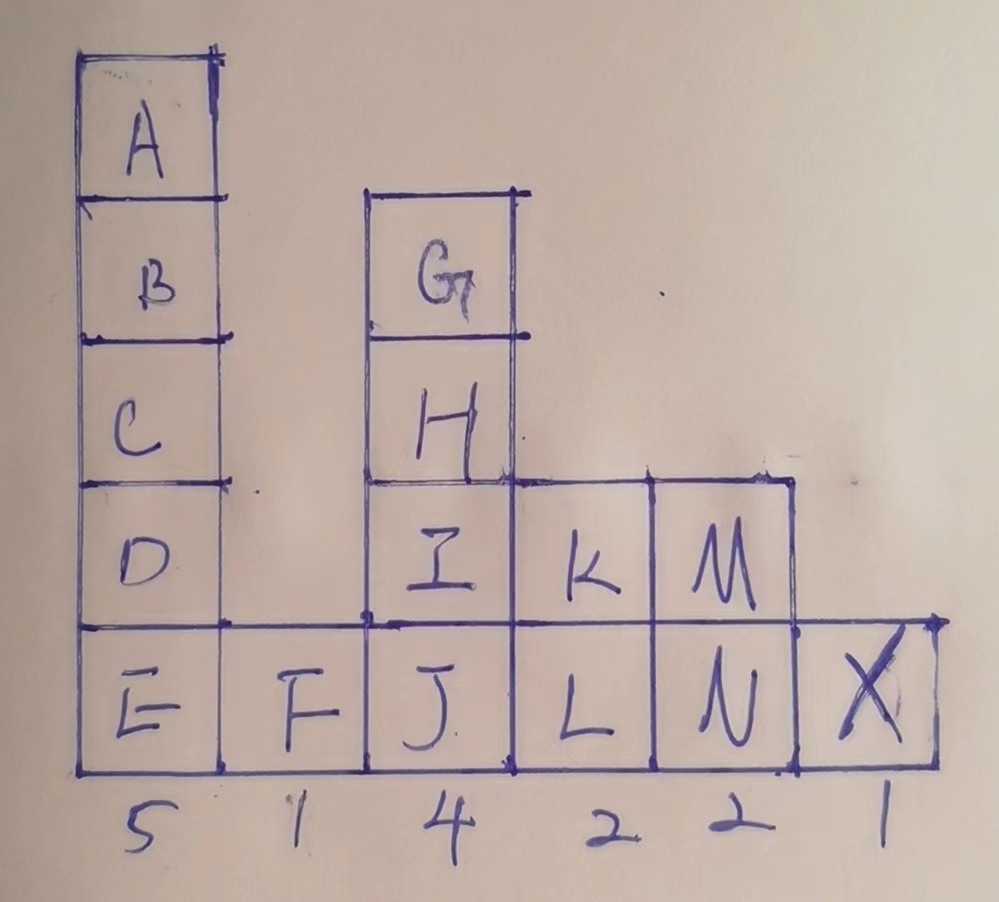 A
B G
C H
D I K M
E F J L N X
5 1 4 2 2 1